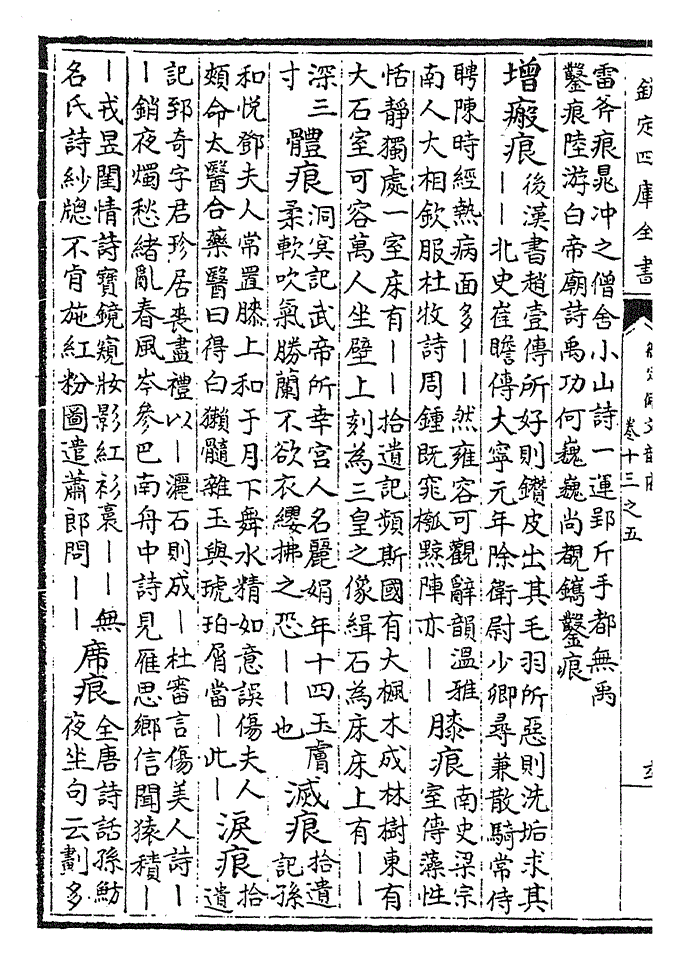 欽定四庫全書
御定佩文韻府
卷十三之五
雷斧痕晁冲之僧舍小山詩一運郢斤手都無禹
鑿痕陸游白帝廟詩禹功何巍巍尚覩鐫鑿痕
增瘢痕
後漢書趙壹傳所好則鑽皮出其毛羽所惡則洗垢求其
——北史崔瞻傳大寧元年除衛尉少卿尋兼散騎常侍
聘陳時經熱病面多——然雍容可觀辭韻溫雅
南人大相欽服杜牧詩周鍾既窕槬黥陣亦——
膝痕
南史梁宗
室傳藻性
恬靜獨處一室床有——拾遺記頻斯國有大楓木成林樹東有
大石室可容萬人坐壁上刻為三皇之像緝石為床床上有——
深三
寸
體痕
洞冥記武帝所幸宮人名麗娟年十四玉膚
柔軟吹氣勝蘭不欲衣纓拂之恐——也
滅痕
拾遺
記孫
和悅鄧夫人常置膝上和于月下舞水精如意誤傷夫人
頰命太醫合藥醫曰得白獺髓雜玉與琥珀屑當—此—
淚痕
拾
遺
記郅奇字君珍居喪盡禮以—灑石則成—杜審言傷美人詩—
—銷夜燭愁緒亂春風岑參巴南舟中詩見雁思鄉信聞猿積—
—戎昱閨情詩寶鏡窺妝影紅衫裛——無
名氏詩紗牕不肯施紅粉圖遣蕭郎問——
席痕
全唐詩話孫魴
夜坐句云劃多